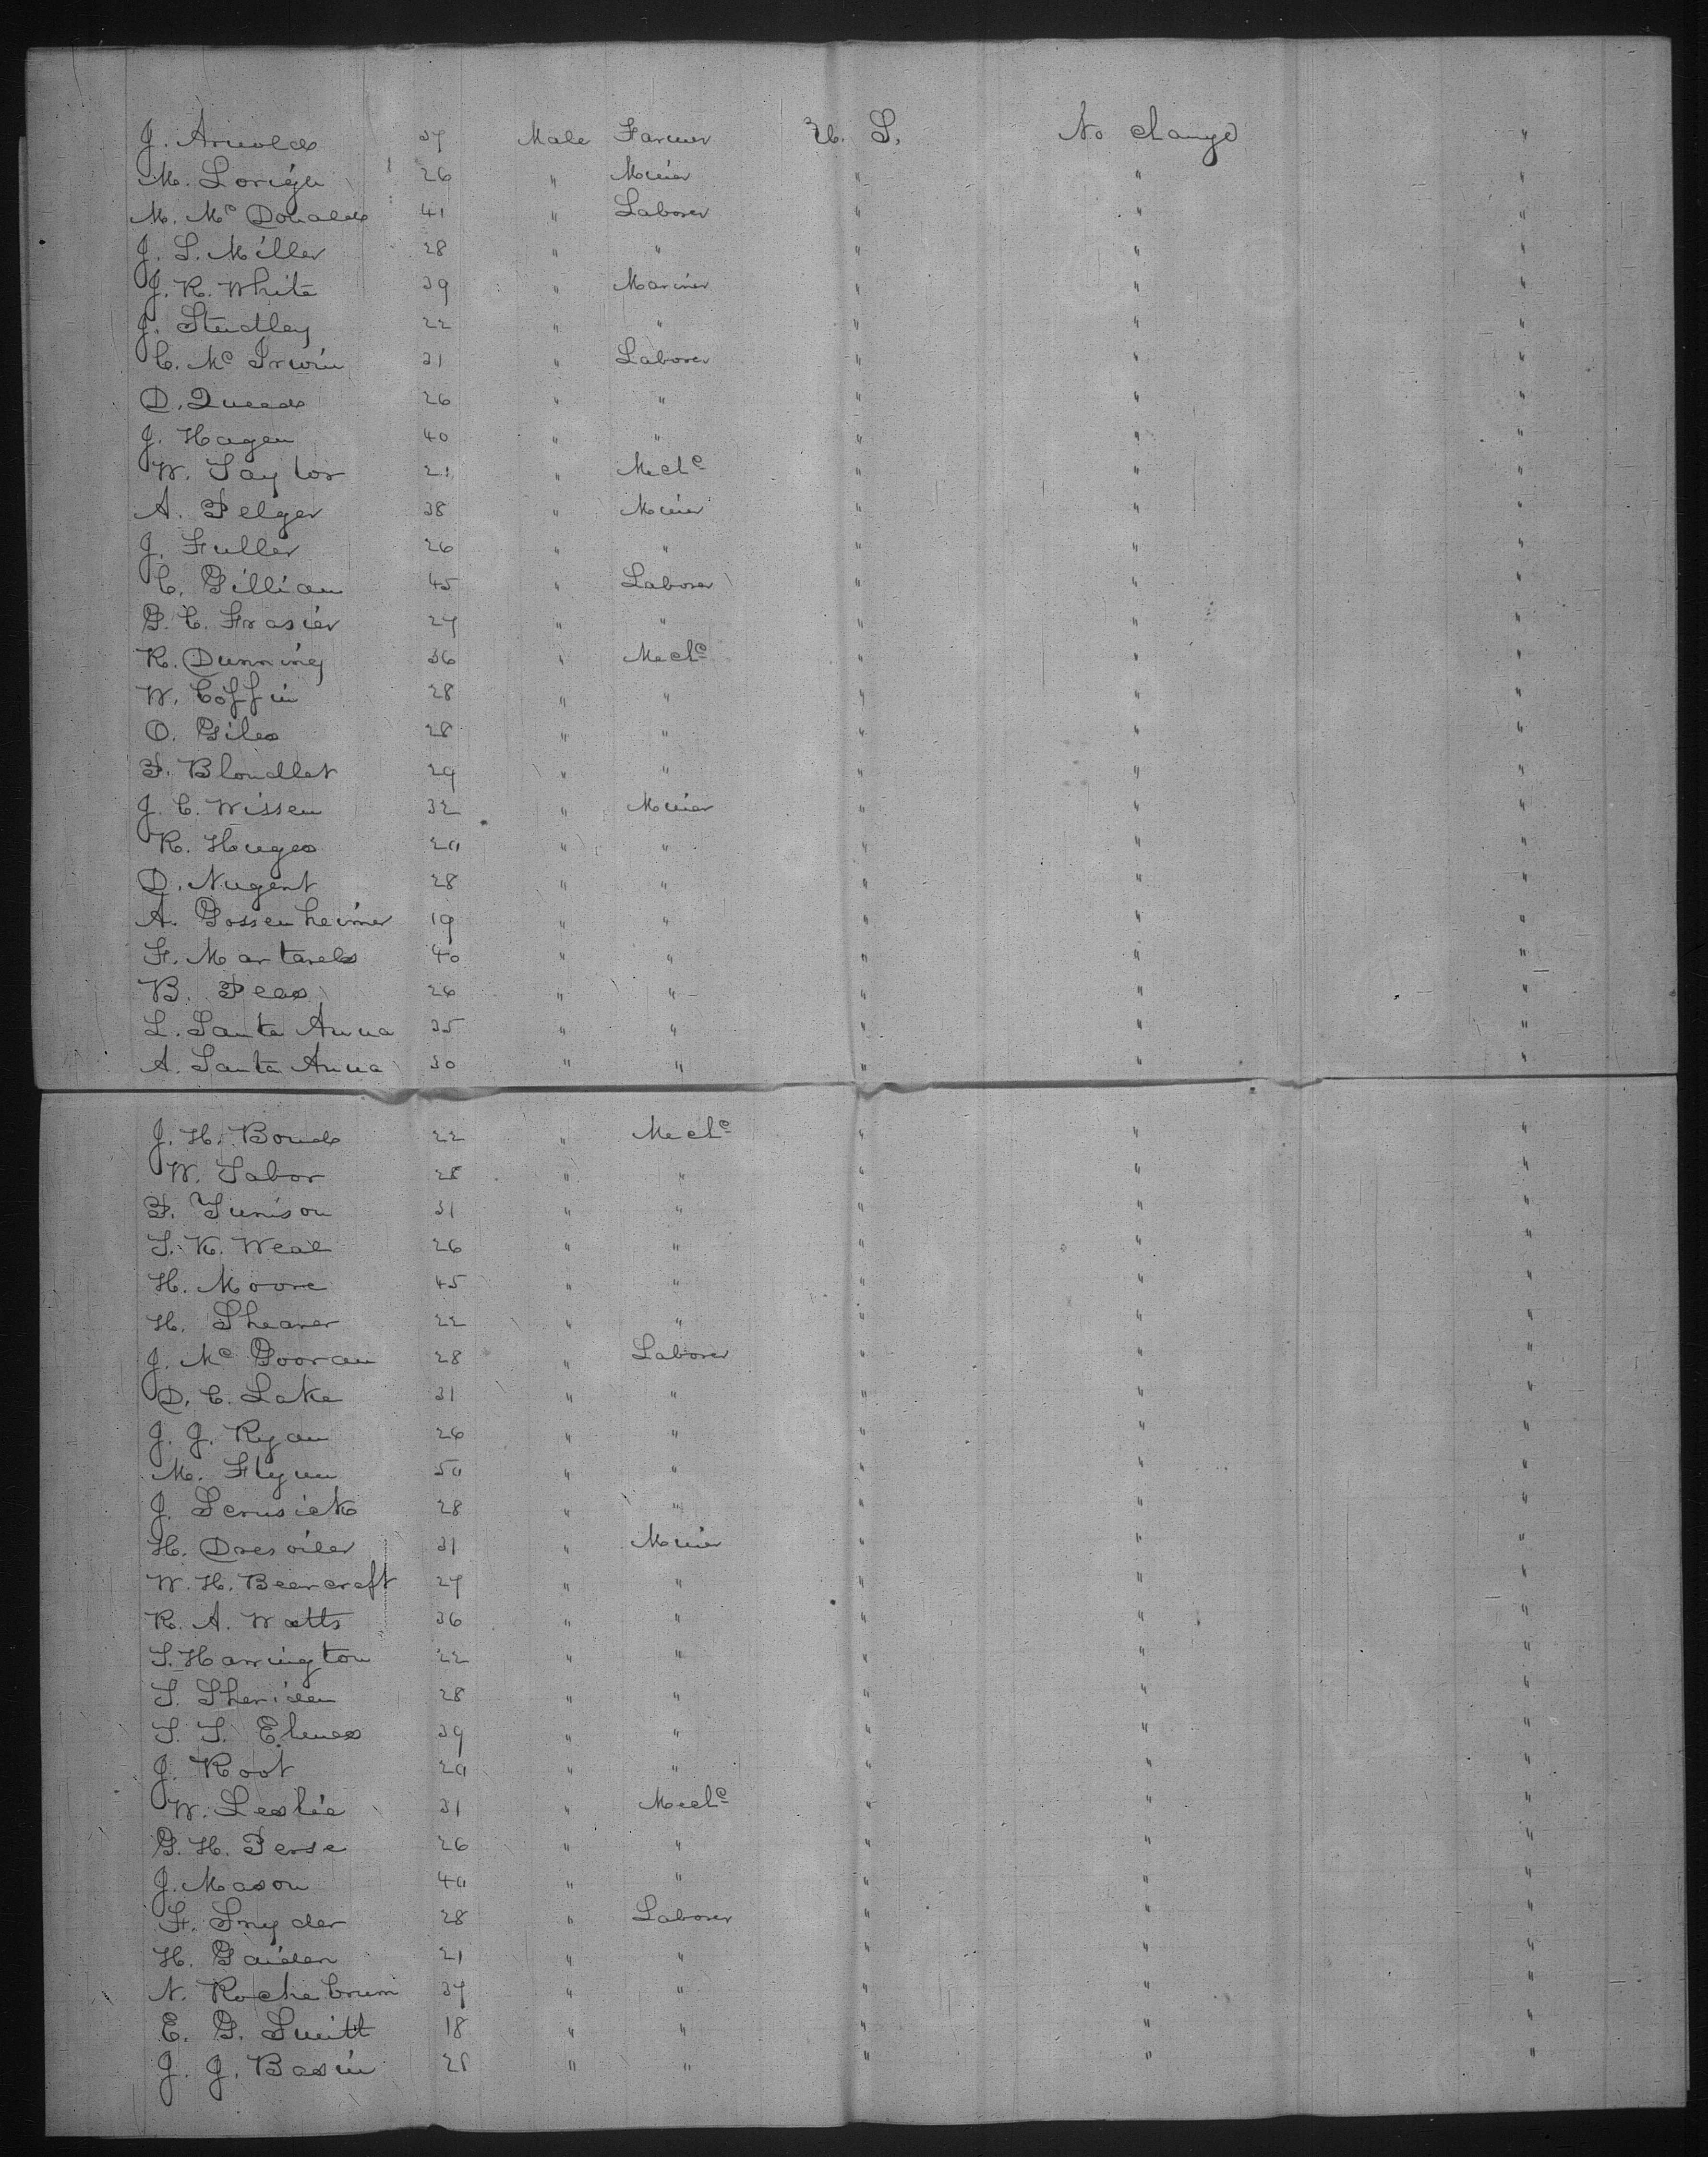 J. Arnold 37 Male Farmer U. S. No change "
M. Lorigh 26 " Miner " " "
M. Mc Donald 41 " Laborer " " "
J. S. Miller 28 " " " " "
J. R. White 39 " Mariner " " "
J. Studley 22 " " " " "
C. Mc Irwin 31 " Laborer " " "
D. Quead 26 " " " " "
J. Hagen 40 " " " " "
W. Taylor 21 " Mech " " "
A. Pelger 38 " Miner " " "
J. Fuller 26 " " " " "
C. Gillian 45 " Laborer " " "
G. C. Frasier 27 " " " " "
R. Dunning 36 " Mech " " "
W. Coffin 28 " " " " "
O. Giles 28 " " " " "
P. Blondlet 29 " " " " "
J. C. Wissen 32 " Miner " " "
R. Huges 20 " " " " "
D. Nugent 28 " " " " "
A. Gossenheimer 19 " " " " "
F. Martarels 40 " " " " "
B. Peas 26 " " " " "
L. Santa Anna 35 " " " " "
A. Santa Anna 30 " " " " "
J. H. Bond 22 " Mech " " "
W. Tabor 28 " " " " "
P. Tunison 31 " " " " "
T. K. Weal 26 " " " " "
H. Moore 45 " " " " "
H. Shearer 22 " " " " "
J. Mc Gooran 28 " Laborer " " "
D. C. Lake 31 " " " " "
J. J. Ryan 26 " " " " "
M. Flynn 50 " " " " "
J. 28 " " " " "
H. Dresoiler 31 " Miner " " "
W. H. Beercraft 27 " " " " "
R. A. Watts 36 " " " " "
T. Harrington 22 " " " " "
T. Sheriden 28 " " " " "
T. S. Elmes 39 " " " " "
J. Root 20 " " " " "
W. Leslie 31 " Mech " " "
G. H. Perse 26 " " " " "
J. Mason 40 " " " " "
F. Snyder 28 " Laborer " " "
H. Gaiden 21 " " " " "
N. Rochebrum 37 " " " " "
E. G. Smitt 18 " " " " "
J. J. Basin 21 " " " " "